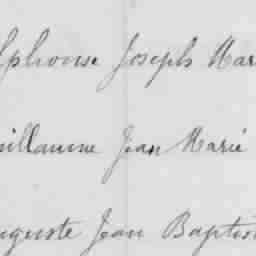 lphonse Joseph Mar
uillaume Jean Marie
uguste Jean Baptis